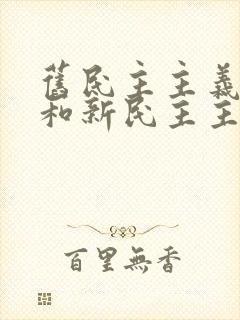 舊民主主義
和新民主主
百里無香